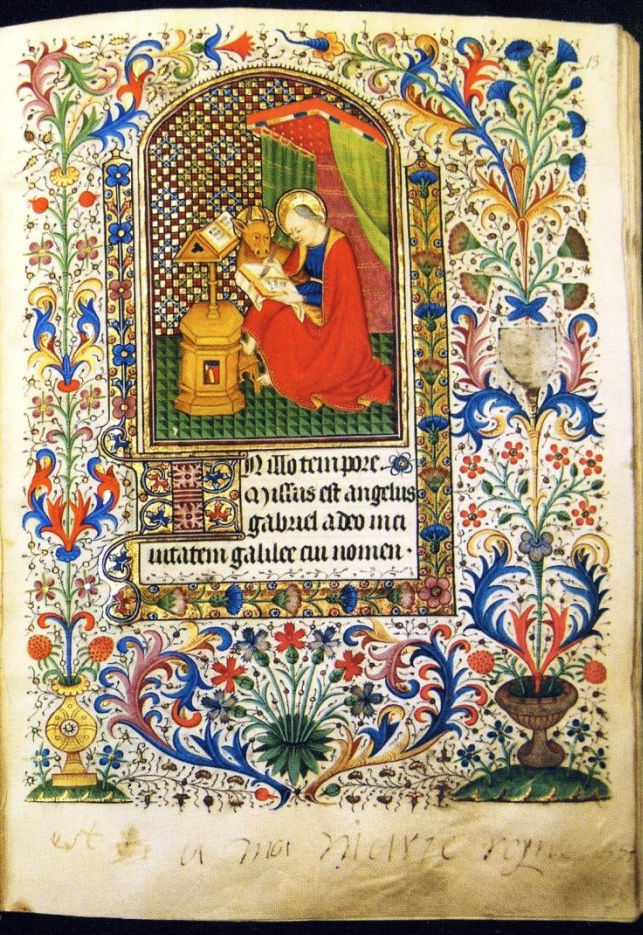 13
IN illo tempore.
Missus est angelus
gabriel a deo in ci
uitatem galilee cui nomen .
est a moi marie